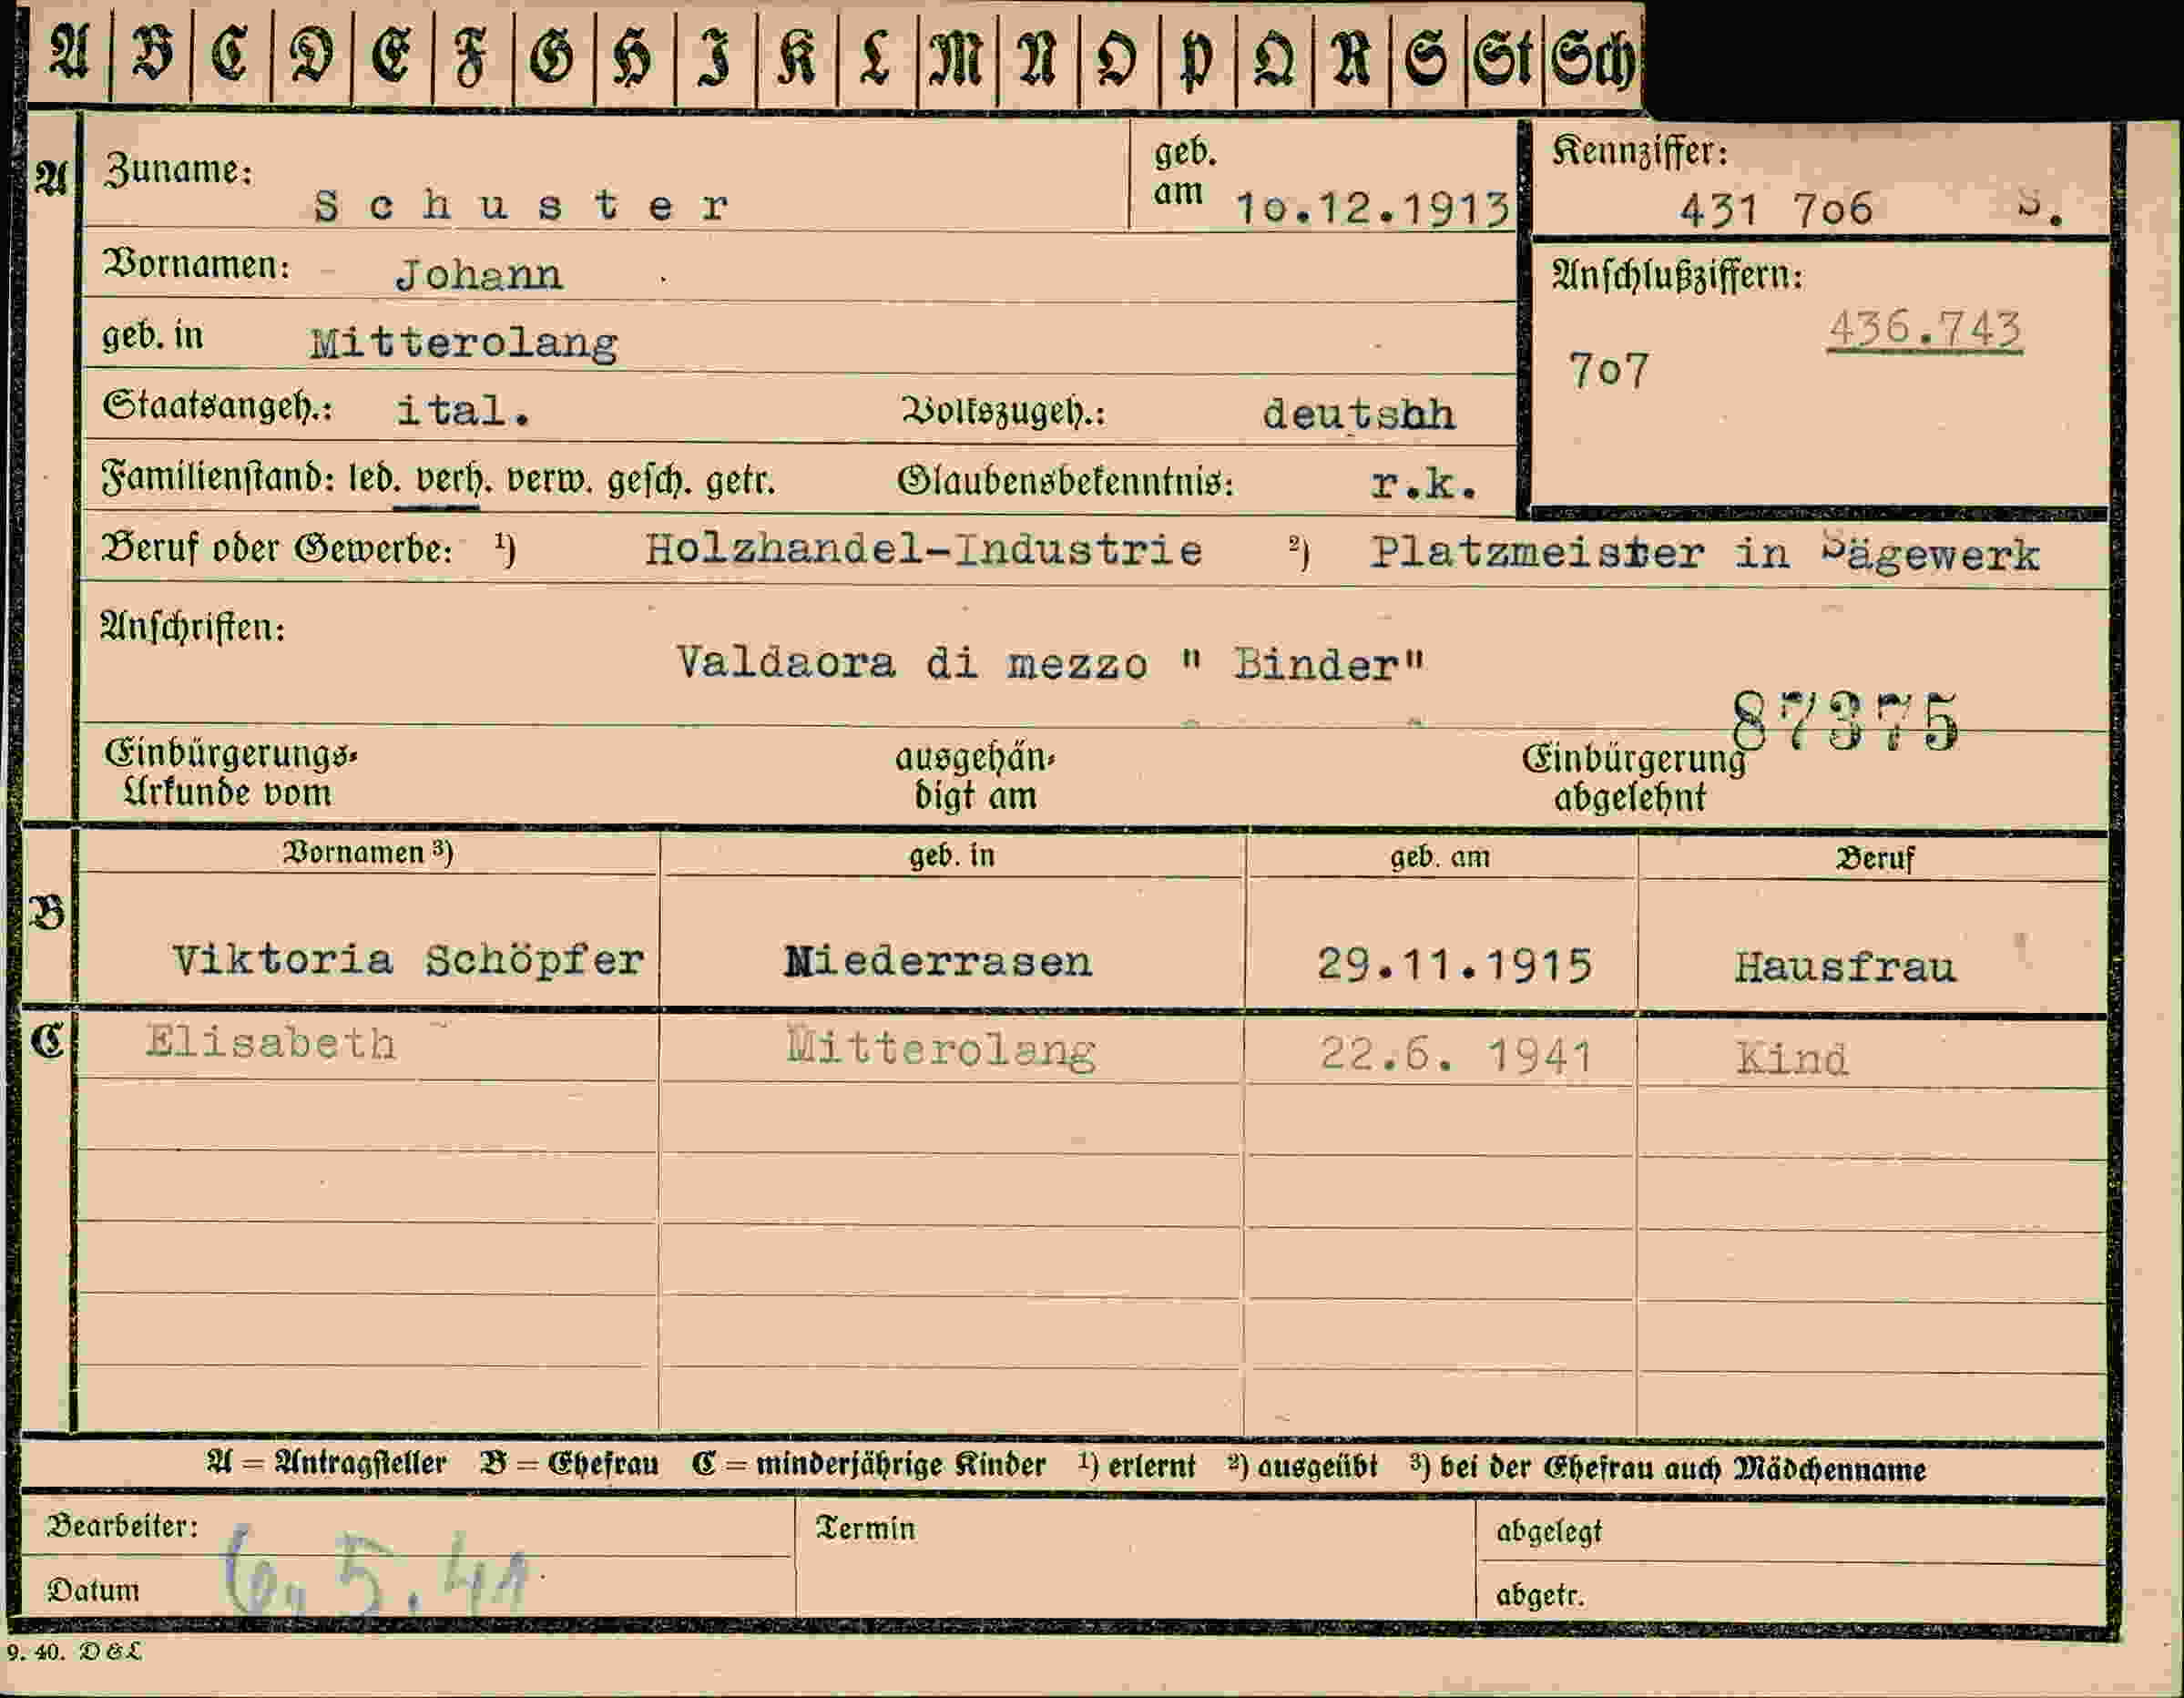 A B C D E F G H I K L M N O P Q R S St Sch
A
Zuname: Schuster
geb. am 1o.12.1913
Kennziffer:
431 7o6 S.
Vornamen: Johann
Anschlußziffern:
436.743
7o7
geb. in Mitterolang
Staatsangeh.: ital. Volkszugeh.: deutshh
Familienstand: led. verh. verw. gesch. getr. Glaubensbekenntnis: r.k.
Beruf oder Gewerbe: ¹) Holzhandel-Industrie ²) Platzmeister in Sägewerk
Anschriften:
Valdaora di mezzo " Binder"
87375
Einbürgerungs- ausgehän- Einbürgerung
Urkunde vom digt am abgelehnt
Vornamen ³) geb. in geb. am Beruf
B
Viktoria Schöpfer Niederrasen 29.11.1915 Hausfrau
C Elisabeth Mitterolang 22.6. 1941 Kind
A = Antragsteller B = Ehefrau C = minderjährige Kinder ¹) erlernt ²) ausgeübt ³) bei der Ehefrau auch Mädchenname
Bearbeiter: Termin abgelegt
Datum 6. 5. 41 abgetr.
9. 40. D & L